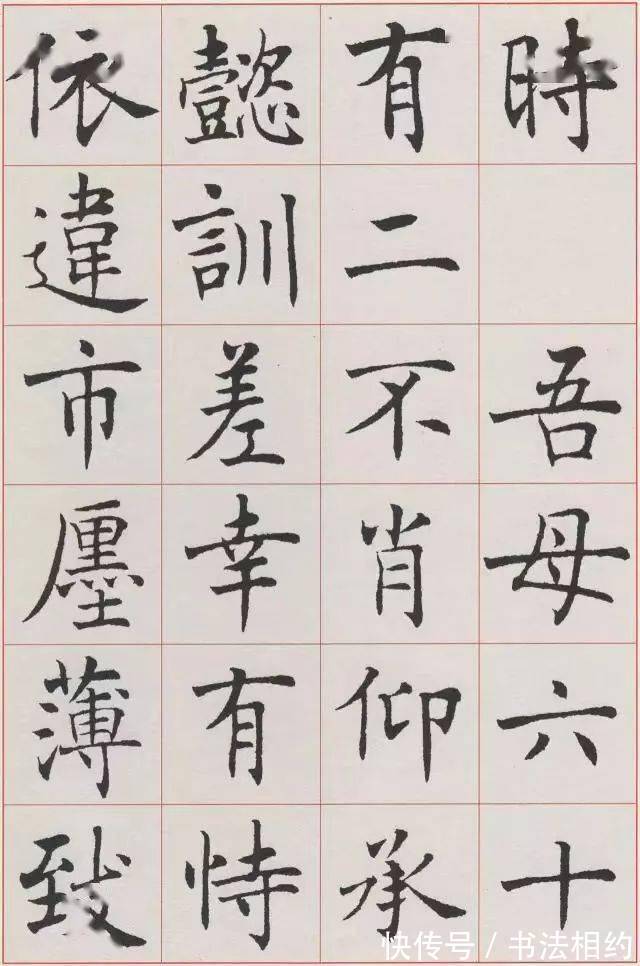 時 吾母六十
有二不肖仰承
懿訓差幸有恃
依違市廛薄致
快传号 / 书法相约